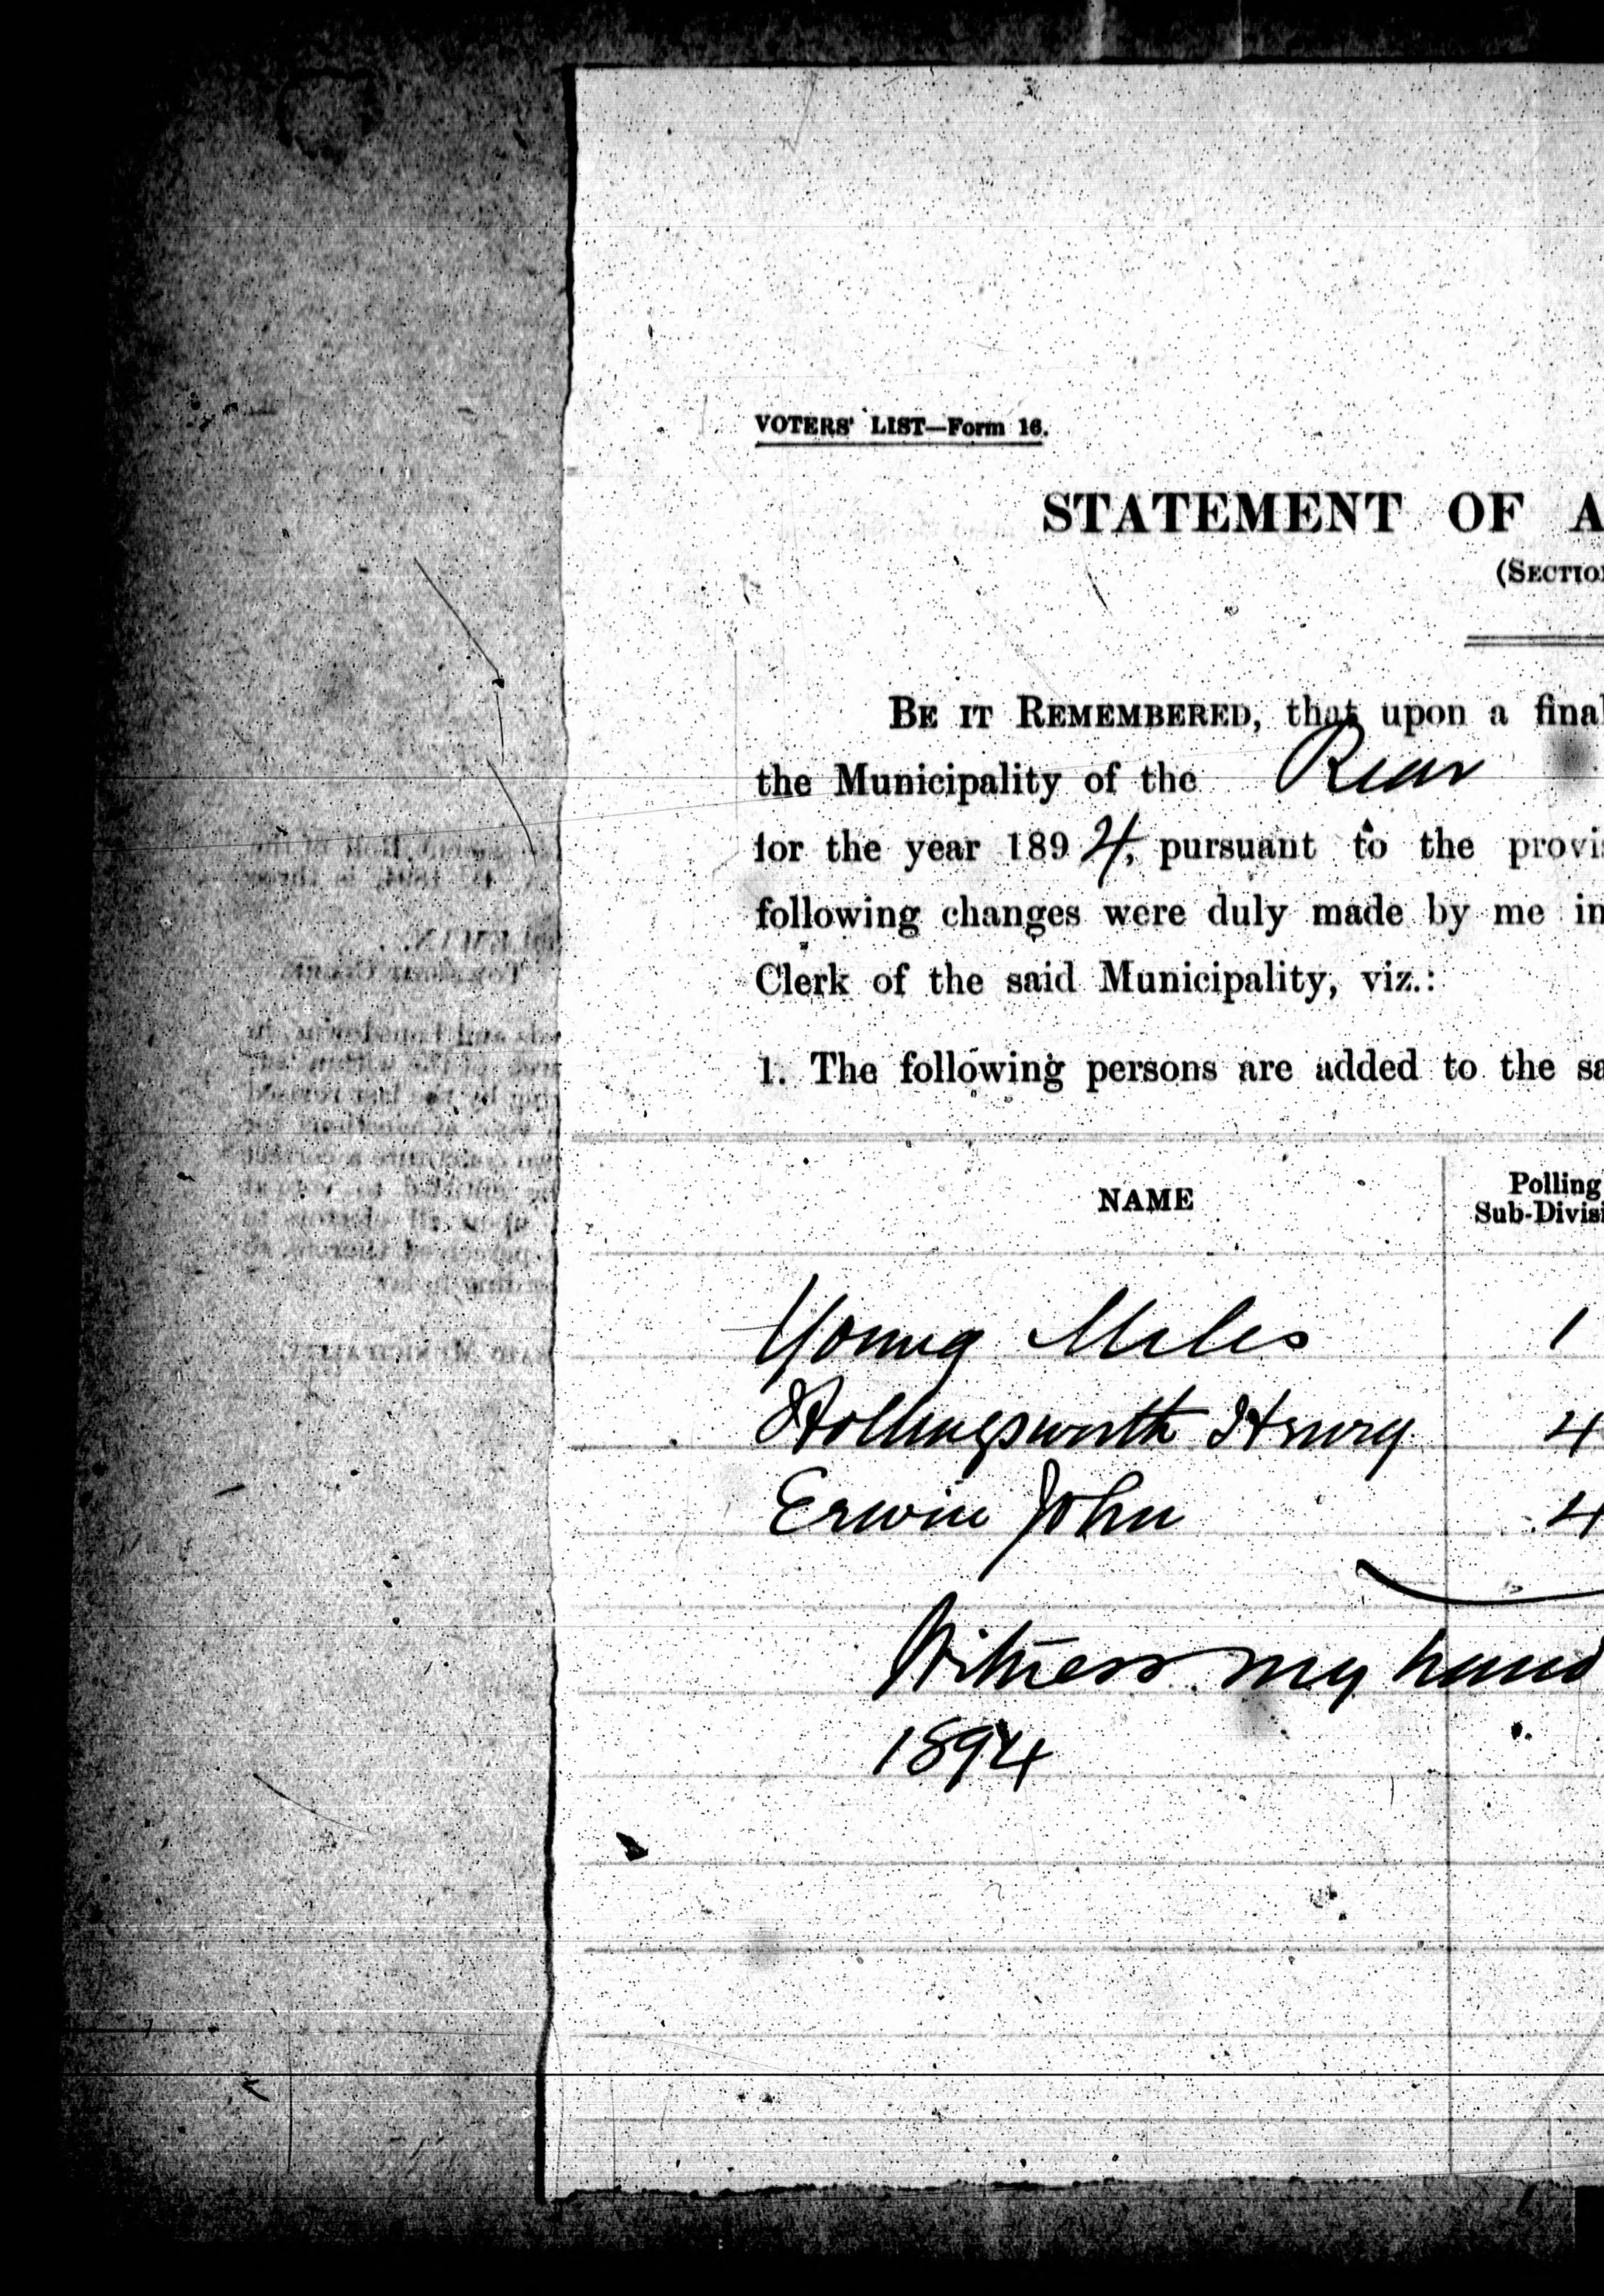 VOTERS' LIST—Form 16.
STATEMENT OF A
(SECTION
BE IT REMEMBERED, that upon a final
the Municipality of the Rear
for the year 1894, pursuant to the provis
following changes were duly made by me in
Clerk of the said Municipality, viz.:
1. The following persons are added to the sa
NAME Polling
Sub-Divisi
Young Miles 1
Hollingsworth Henry 4
Erwin John 4
Witness my hand
1894